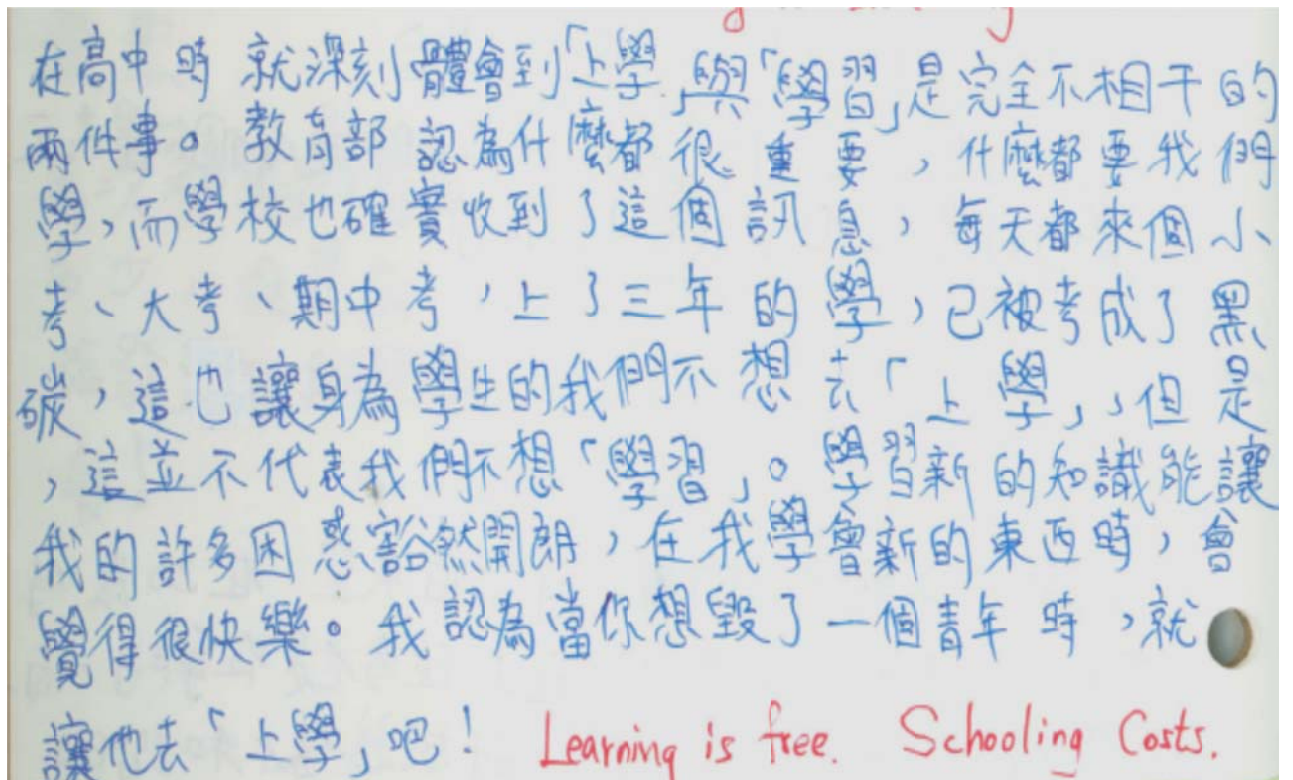 在高中時就深刻體會到「上學」與「學習」是完全不相干的
兩件事。教育部認為什麼都很重要,什麼都要我們
學,而學校也確實收到了這個訊息,每天都來個小
考、大考、期中考,上了三年的學,已被考成了黑
碳,這也讓身為學生的我們不想去「上學」,但是
,這並不代表我們不想「學習」。學習新的知識能讓
我的許多困惑豁然開朗,在我學會新的東西時,會
覺得很快樂。我認為當你想毀了一個青年時,就
讓他去「上學」吧! Learning is free. Schooling Costs.